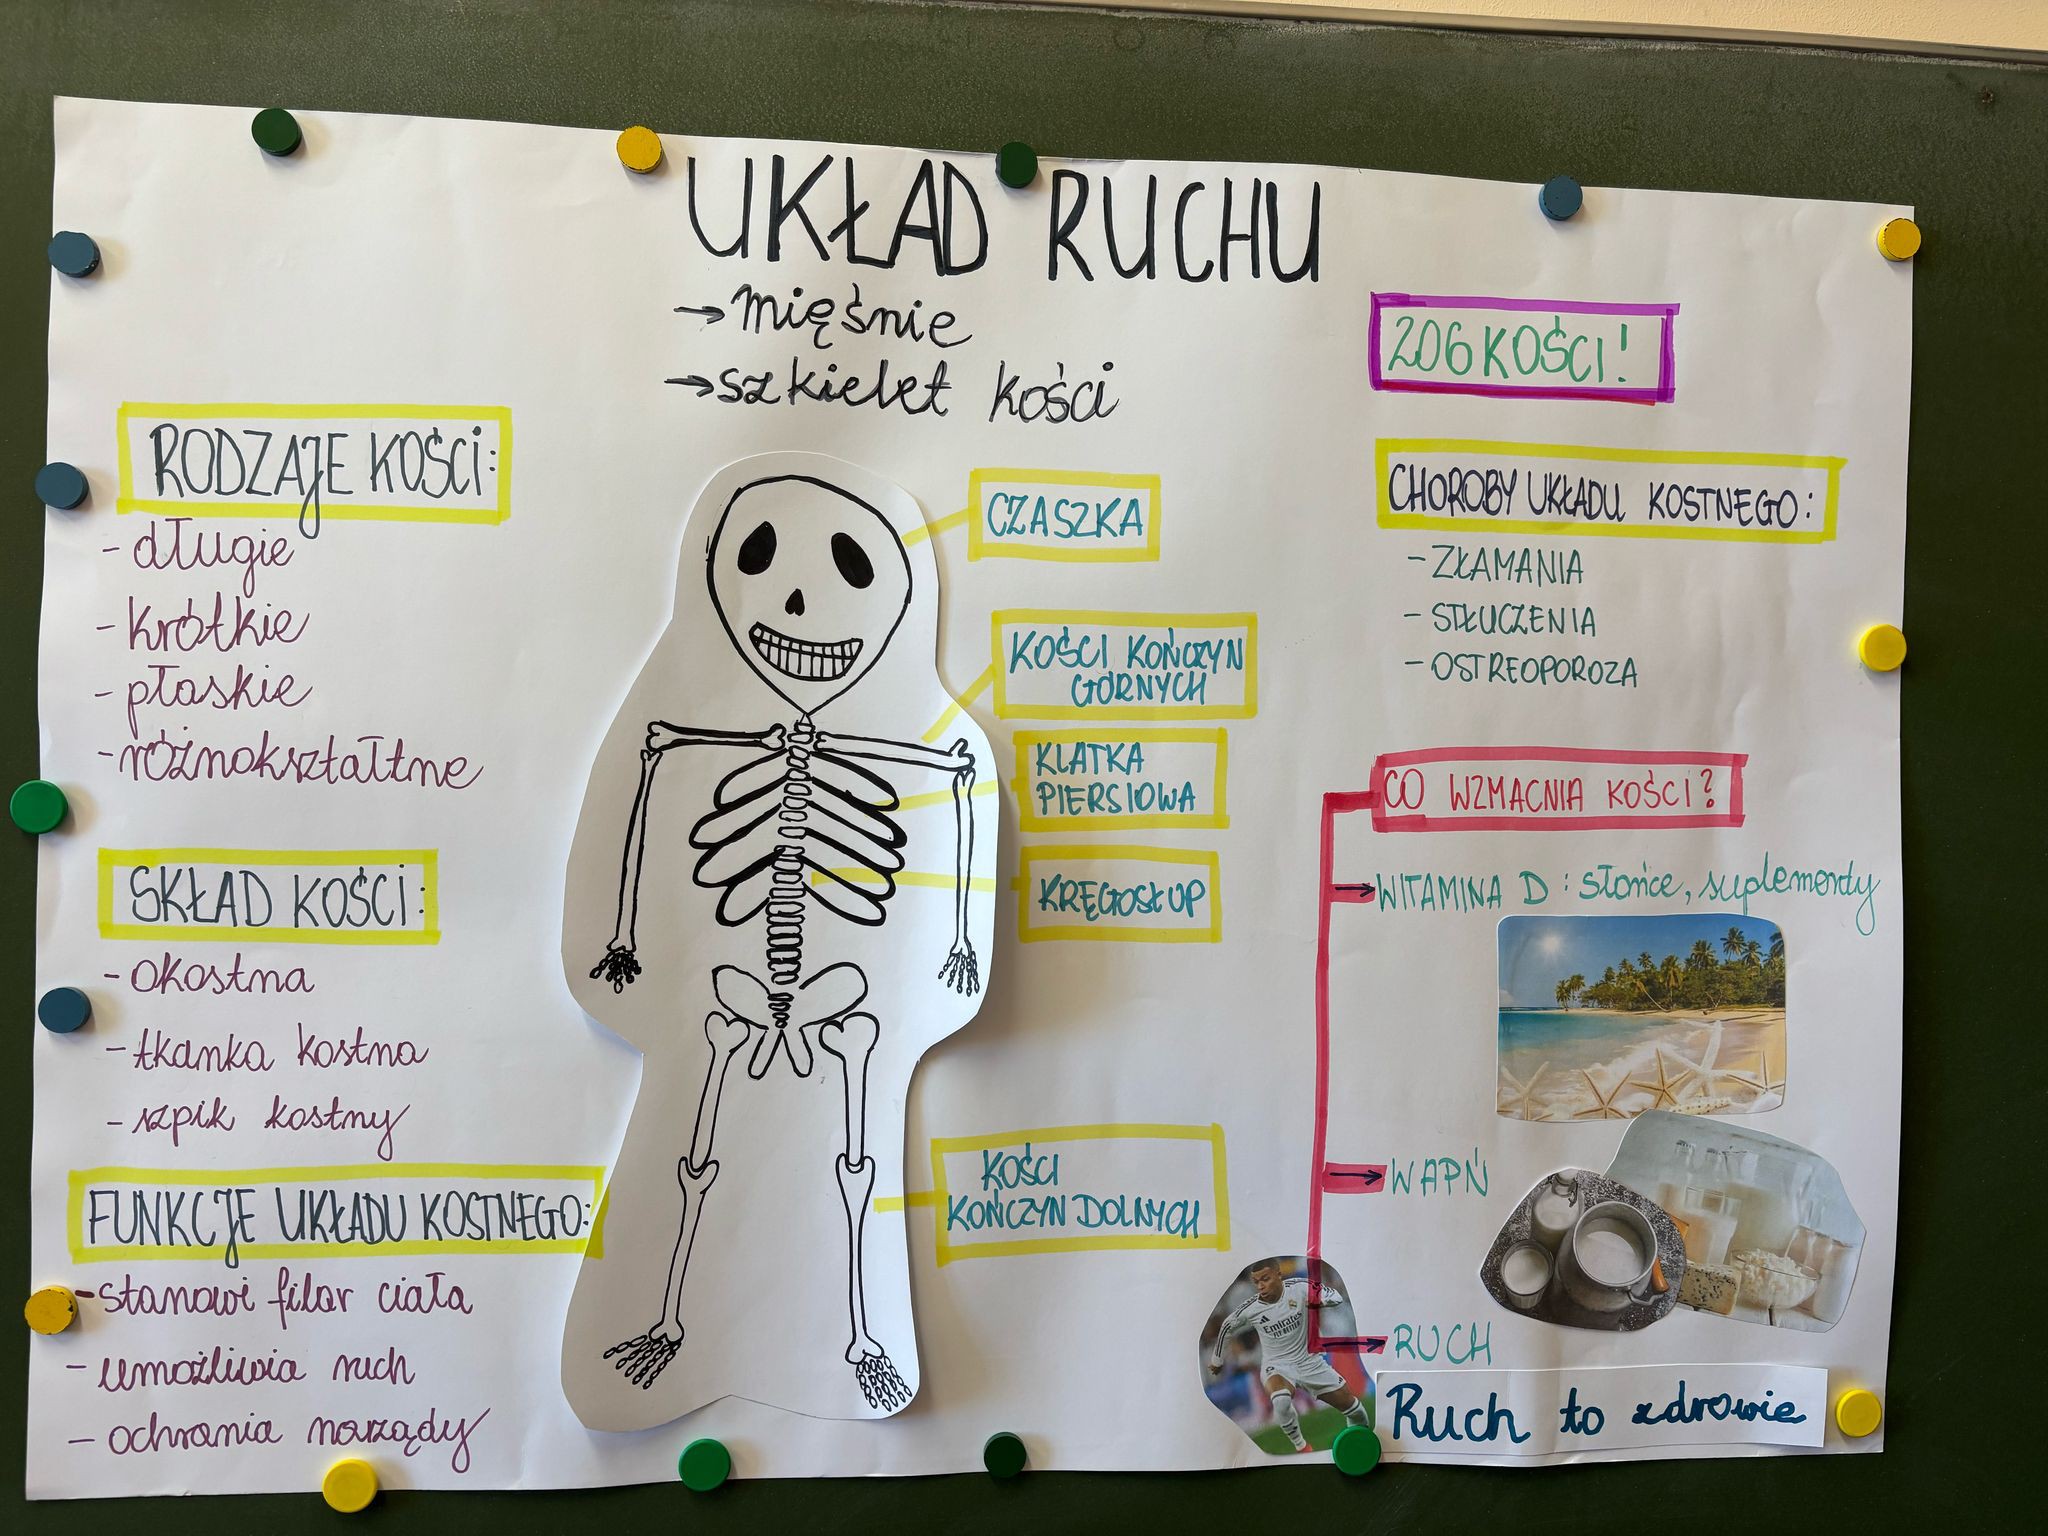 UKŁAD RUCHU
→ mięśnie
→ szkielet kości
RODZAJE KOŚCI:
- długie
- krótkie
- płaskie
- różnokształtne
SKŁAD KOŚCI:
- okostna
- tkanka kostna
- szpik kostny
FUNKCJE UKŁADU KOSTNEGO:
- stanowi filar ciała
- umożliwia ruch
- ochrania narządy
CZASZKA
KOŚCI KOŃCZYN
GÓRNYCH
KLATKA
PIERSIOWA
KRĘGOSŁUP
KOŚCI
KOŃCZYN DOLNYCH
206 KOŚCI!
CHOROBY UKŁADU KOSTNEGO:
- ZŁAMANIA
- STŁUCZENIA
- OSTREOPOROZA
CO WZMACNIA KOŚCI?
→ WITAMINA D : słońce, suplementy
→ WAPŃ
→ RUCH
Emirates
FLY BETTER
Ruch to zdrowie